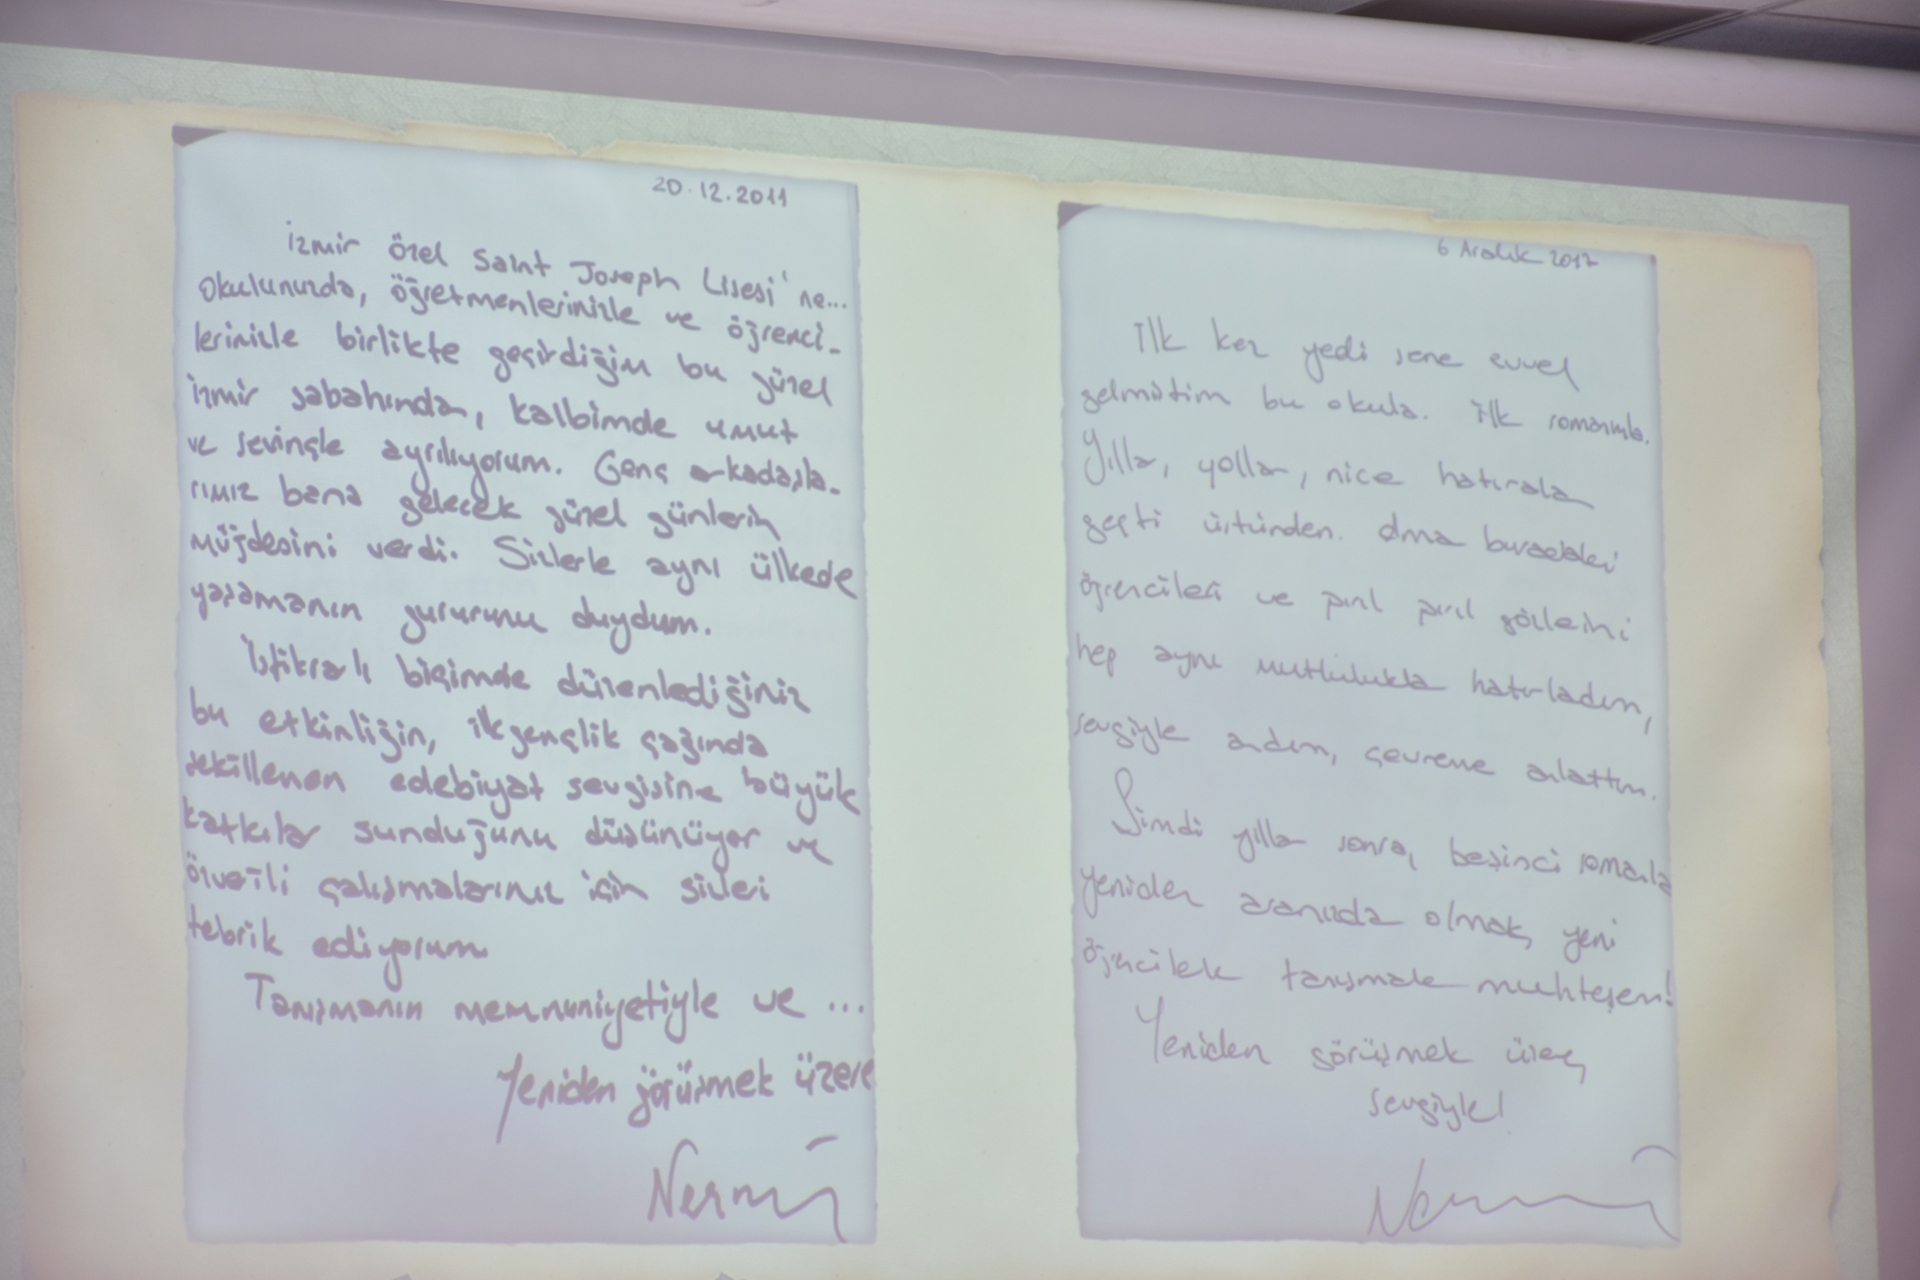 20.12.2011
İzmir Özel Saint Joseph Lisesi'ne...
Okulunuzda, öğretmenlerinizle ve öğrenci-
lerinizle birlikte geçirdiğim bu güzel
İzmir sabahından, kalbimde umut
ve sevinçle ayrılıyorum. Genç arkadaşla-
rımız bana gelecek güzel günlerin
müjdesini verdi. Sizlerle aynı ülkede
yaşamanın gururunu duydum.
İstikrarlı biçimde düzenlediğiniz
bu etkinliğin, ilkgençlik çağında
şekillenen edebiyat sevgisine büyük
katkılar sunduğunu düşünüyor ve
özverili çalışmalarınız için sizleri
tebrik ediyorum.
Tanışmanın memnuniyetiyle ve ...
Yeniden görüşmek üzere
Nermin
6 Aralık 2017
İlk kez yedi sene evvel
gelmiştim bu okula. İlk romanımla.
Yıllar, yollar, nice hatıralar
geçti üstünden. Ama buradaki
öğrencileri ve pırıl pırıl gözlerini
hep aynı mutlulukla hatırladım,
sevgiyle andım, çevreme anlattım.
Şimdi yıllar sonra, beşinci romanla
yeniden aranızda olmak, yeni
öğrencilerle tanışmak muhteşem!
Yeniden görüşmek üzere,
sevgiyle!